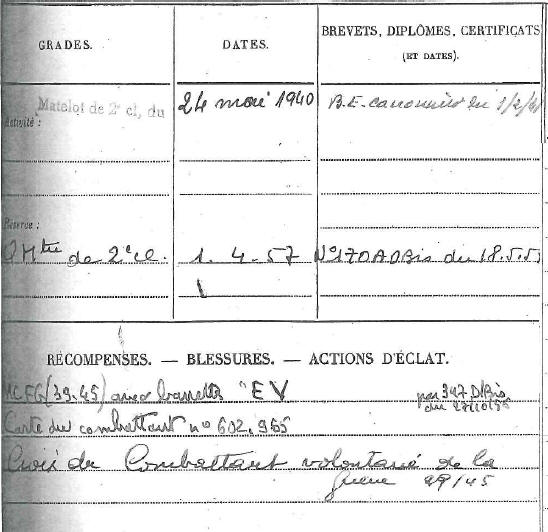 GRADES.
DATES.
BREVETS, DIPLÔMES, CERTIFICATS
(ET DATES).
Activité :
Matelot de 2e cl, du
24 mai 1940
B.E. canonnier du 1/2/41
Réserve :
QMtre de 2e cl.
1. 4. 57
N° 170 AD Bis du 18.5.5
RÉCOMPENSES. — BLESSURES. — ACTIONS D'ÉCLAT.
MCFG (39.45) avec barrette "EV
par 347 D/Bis
du 27/10/55
Carte du combattant n° 602,955
Croix du Combattant volontaire de la
guerre 39/45